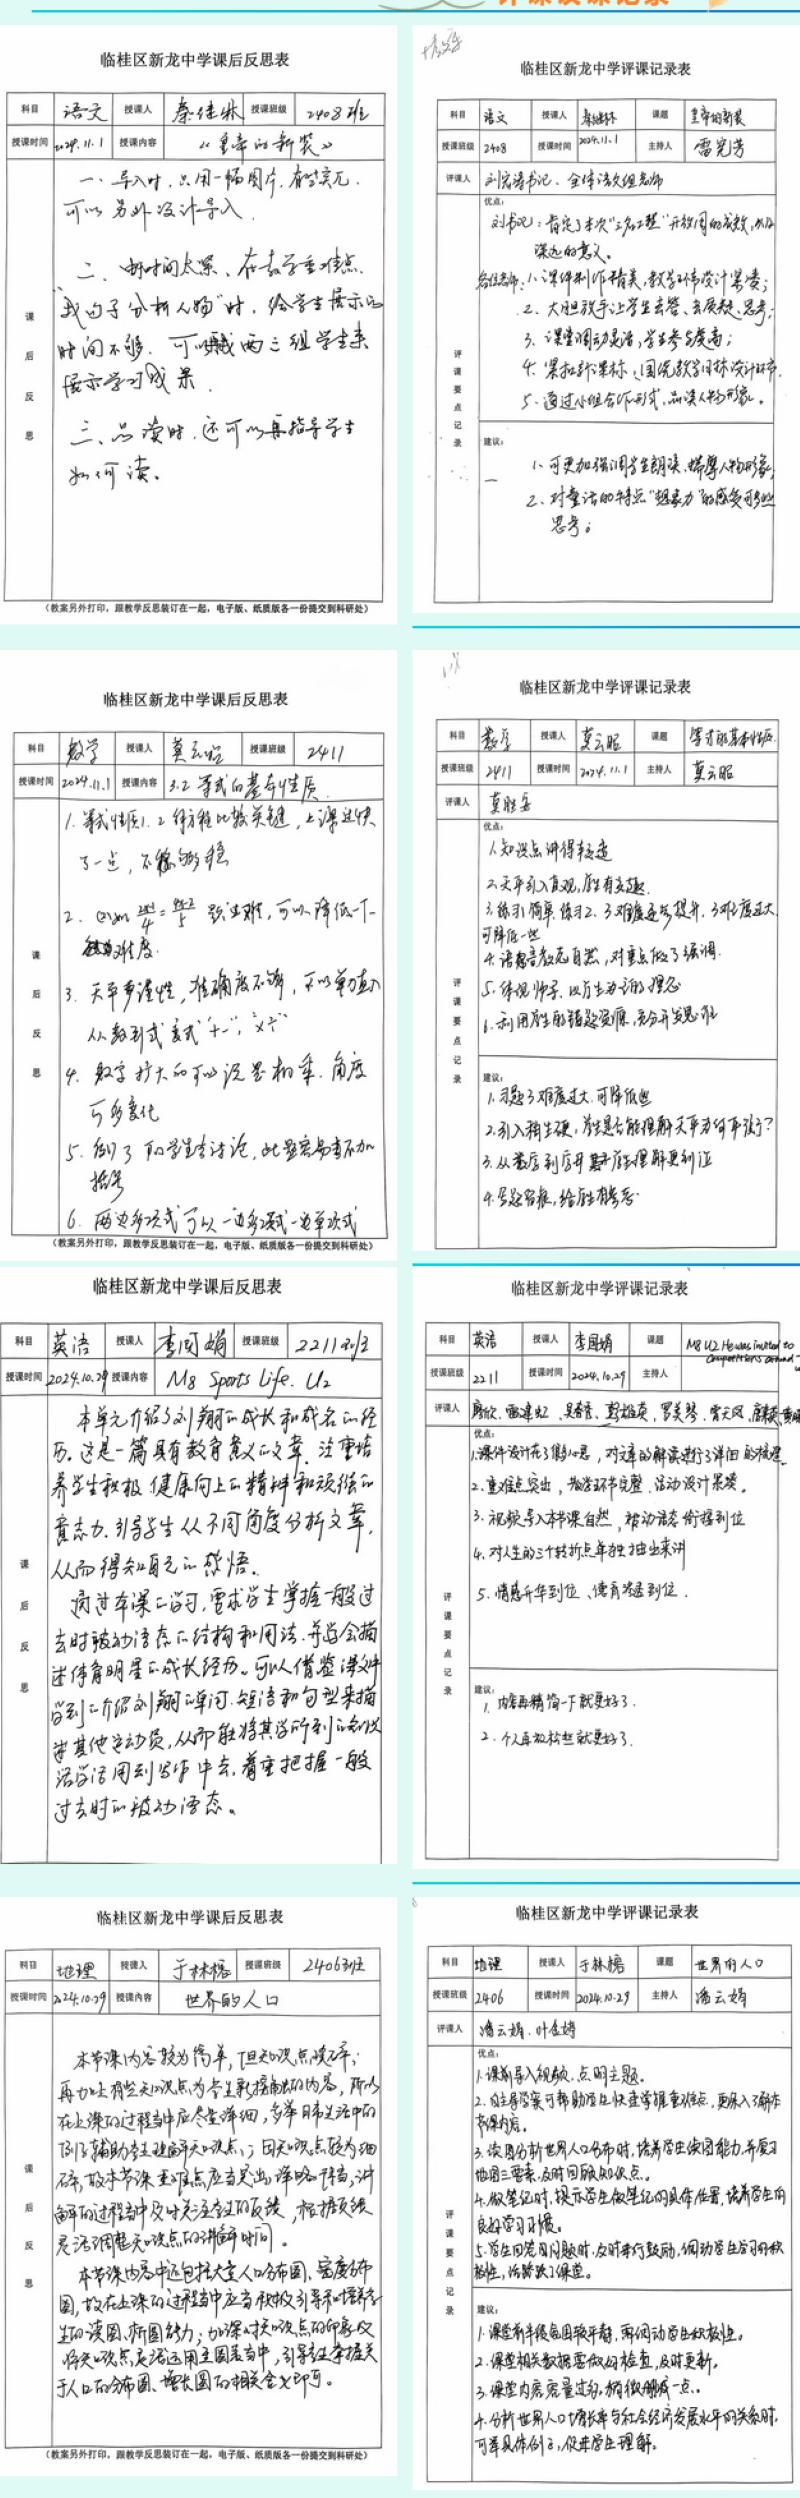 临桂区新龙中学课后反思表
科目 语文 授课人 秦佳林 授课班级 2408班
授课时间 2024.11.1 授课内容 《皇帝的新装》
课后反思
一、导入时，只用一幅图片，有些突兀，
可以另外设计导入。
二、时间太紧、在教学重难点
时间不够.可以 两三组学生来
展示学习成果.
三、品读时，还可以再指导学生
如何读。
（教案另外打印，跟教学反思装订在一起，电子版、纸质版各一份提交到科研处）
临桂区新龙中学评课记录表
科目 语文 授课人 秦佳林 课题 皇帝的新装
授课班级 2408 授课时间 2024.11.1 主持人 雷完芳
评课人
评课要点记录
优点：
深远的意义。
各位老师：1、课件制作精美，教学环节设计紧凑；
2、大胆放手让学生去答、去质疑、思考；
3、课堂调动灵活，学生参与度高；
4、紧扣新课标，围绕教学目标设计环节.
5、通过小组合作形式，品读人物形象。
建议：
1、可更加强调学生朗读、揣摩人物形象；
2、对童话的特点"想象力"的感受可多些
思考；
临桂区新龙中学课后反思表
科目 数学 授课人 莫云昭 授课班级 2411
授课时间 2024.11.1 授课内容 3.2 等式的基本性质
课后反思
1. 等式性质1、2 解方程比较关键，上课过快
了一点，不够
2. 题过难，可以降低一下
难度.
3. 天平 准确度不
4. 数字扩大 可以说是 角度
可多变化
5. 例3 学生去讨论，
括号
6. 两边多项式可以一边多项式一边单项式
（教案另外打印，跟教学反思装订在一起，电子版、纸质版各一份提交到科研处）
临桂区新龙中学评课记录表
科目 数学 授课人 莫云昭 课题 等式的基本性质
授课班级 2411 授课时间 2024.11.1 主持人 莫云昭
评课人
评课要点记录
优点：
1.知识点讲得较透
2.天平引入直观，学生有兴趣.
3.练习1简单，练习2、3难度逐步提升，3难度过大
可降低一些
4.语言 自然，对重点做了强调.
5.体现 以学生为主的理念
6.利用学生的错题资源，充分开发思维
建议：
1.习题3难度过大，可降低些
2.引入稍生硬，学生是否能理解天平为何平衡了?
3.从 学生理解更到位
4.
临桂区新龙中学课后反思表
科目 英语 授课人 李国娟 授课班级 2211班
授课时间 2024.10.29 授课内容 M8 Sports Life. U2
课后反思
本单元介绍了刘翔的成长和成名的经
历。这是一篇具有教育意义的文章，注重培
养学生积极健康向上的精神和顽强的
意志力.引导学生从不同角度分析文章，
从而得知自己的感悟。
通过本课的学习，要求学生掌握一般过
去时被动语态的结构和用法.并学会描
述体育明星的成长经历。可以借鉴课文中
学到的介绍刘翔的单词、短语和句型来描
述其他运动员，从而能将其学所到的知识
活学活用到写作中去，着重把握一般
过去时的被动语态。
临桂区新龙中学评课记录表
科目 英语 授课人 李国娟 课题 M8 U2 He was invited to competitions around
授课班级 2211 授课时间 2024.10.29 主持人
评课人
评课要点记录
优点：
1.课件设计花了很多心思，对文章的解读进行了详细的梳理。
2.重难点突出，教学环节完整，活动设计紧凑。
3.视频导入本节课自然，被动语态衔接到位
4.对人生的三个转折点单独抽出来讲
5.情感升华到位、德育渗透到位.
建议：
1. 内容再精简一下就更好了.
2. 个人再放松些就更好了.
临桂区新龙中学课后反思表
科目 地理 授课人 于林榕 授课班级 2406班
授课时间 2024.10.29 授课内容 世界的人口
课后反思
本节课内容较为简单，但知识点琐碎；
再加上有些知识点为学生新接触的内容，所以
在上课的过程当中应尽量详细，多举日常生活中的
例子辅助学生理解知识点；因知识点较为细
碎，故本节课重难点应当突出，详略得当，讲
解的过程当中及时关注学生的反馈，根据反馈
灵活调整知识点的讲解时间。
本节课内容中还包括大量人口分布图、密度分布
图，故在上课的过程当中应当积极引导和培养学
生的读图、析图能力；加深对知识点的印象及
将知识点灵活运用至图表当中，引导学生掌握关
于人口的分布图、增长图的相关含义即可。
（教案另外打印，跟教学反思装订在一起，电子版、纸质版各一份提交到科研处）
临桂区新龙中学评课记录表
科目 地理 授课人 于林榕 课题 世界的人口
授课班级 2406 授课时间 2024.10.29 主持人 潘云娟
评课人 潘云娟、叶金婷
评课要点记录
优点：
1.课前导入视频，点明主题。
2.自主导学案可帮助学生快速掌握重难点，更深入了解本
节课内容。
3.读图分析世界人口分布时，培养学生读图能力，并复习
地图三要素，及时回顾知识点。
4.做笔记时，提示学生做笔记的具体位置，培养学生的
良好学习习惯。
5.学生回答问题时，及时进行鼓励，调动学生学习的积
极性，活跃了课堂。
建议：
1.课堂前半段氛围较平静，再调动学生积极性。
2.课堂相关数据需做好检查，及时更新。
3.课堂内容容量过多，稍微删减一点。
4.分析世界人口增长率与社会经济发展水平的关系时，
可举具体例子，促进学生理解。